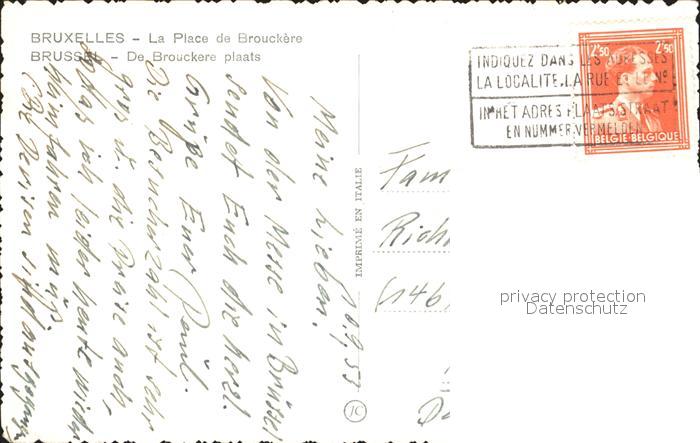 BRUXELLES – La Place de Brouckère
BRUSSEL – De Brouckere plaats
INDIQUEZ DANS LES ADRESSES
LA LOCALITE, LA RUE ET LE Nº
IN HET ADRES PLAATS, STRAAT
EN NUMMER VERMELDEN
2F50 2F50
BELGIE BELGIQUE
10.9.53
Meine Lieben.
Von der Messe in Brüssel
sendet Euch die herzl.
Grüße Euer Paul.
Die Besucherzahl ist sehr
groß u. die Preise auch,
ich leider heute wieder
heimfahren muß.
Die Devisen sind
IMPRIMÉ EN ITALIE
Fam
Rich
(146
privacy protection
Datenschutz